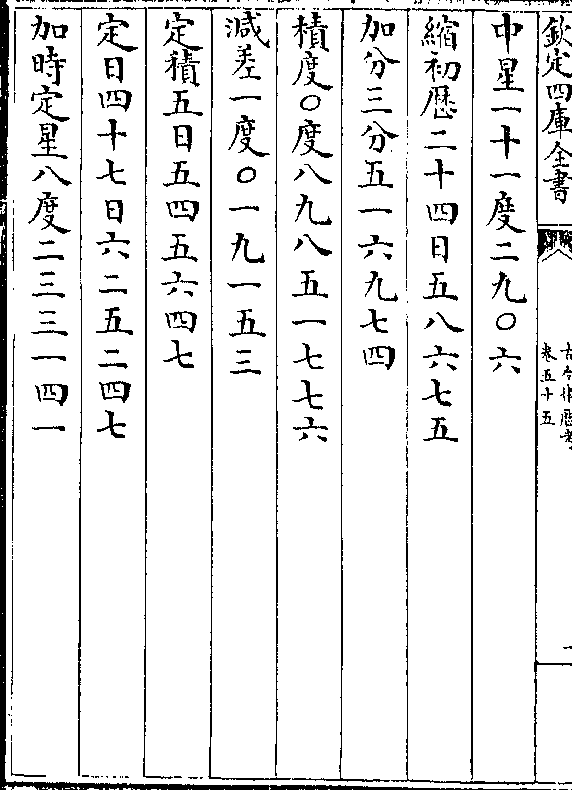 欽定四庫全書
古今律歴考
卷五十五
中星一十一度二九〇六
縮初歴二十四日五八六七五
加分三分五一六九七四
積度〇度八九八五一七七六
減差一度〇一九一五三
定積五日五四五六四七
定日四十七日六二五二四七
加時定星八度二三三一四一